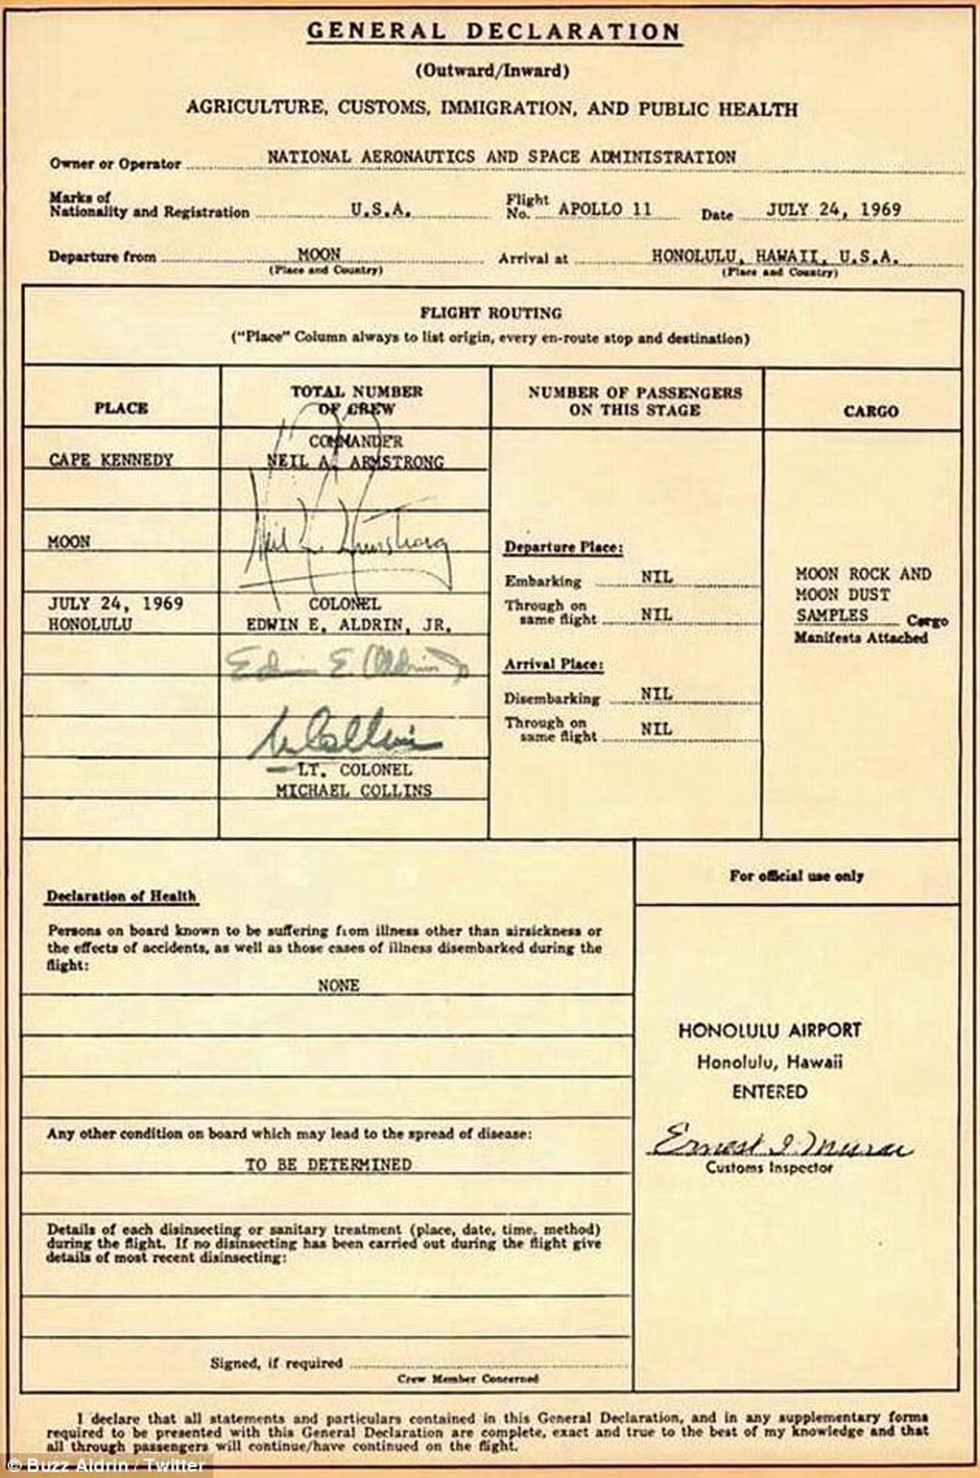 GENERAL DECLARATION
(Outward/Inward)
AGRICULTURE, CUSTOMS, IMMIGRATION, AND PUBLIC HEALTH
Owner or Operator NATIONAL AERONAUTICS AND SPACE ADMINISTRATION
Marks of
Nationality and Registration U.S.A. Flight No. APOLLO 11 Date JULY 24, 1969
Departure from MOON Arrival at HONOLULU, HAWAII, U.S.A.
(Place and Country) (Place and Country)
FLIGHT ROUTING
("Place" Column always to list origin, every en-route stop and destination)
PLACE
TOTAL NUMBER
OF CREW
NUMBER OF PASSENGERS
ON THIS STAGE
CARGO
CAPE KENNEDY
MOON
JULY 24, 1969
HONOLULU
COMMANDER
NEIL A. ARMSTRONG
Neil A. Armstrong
COLONEL
EDWIN E. ALDRIN, JR.
Edwin E. Aldrin Jr
M Collins
LT. COLONEL
MICHAEL COLLINS
Departure Place:
Embarking NIL
Through on
same flight NIL
Arrival Place:
Disembarking NIL
Through on
same flight NIL
MOON ROCK AND
MOON DUST
SAMPLES Cargo
Manifests Attached
Declaration of Health
Persons on board known to be suffering from illness other than airsickness or
the effects of accidents, as well as those cases of illness disembarked during the
flight:
NONE
Any other condition on board which may lead to the spread of disease:
TO BE DETERMINED
Details of each disinsecting or sanitary treatment (place, date, time, method)
during the flight. If no disinsecting has been carried out during the flight give
details of most recent disinsecting:
Signed, if required
Crew Member Concerned
For official use only
HONOLULU AIRPORT
Honolulu, Hawaii
ENTERED
Ernest I.
Customs Inspector
I declare that all statements and particulars contained in this General Declaration, and in any supplementary forms
required to be presented with this General Declaration are complete, exact and true to the best of my knowledge and that
all through passengers will continue/have continued on the flight.
© Buzz Aldrin / Twitter